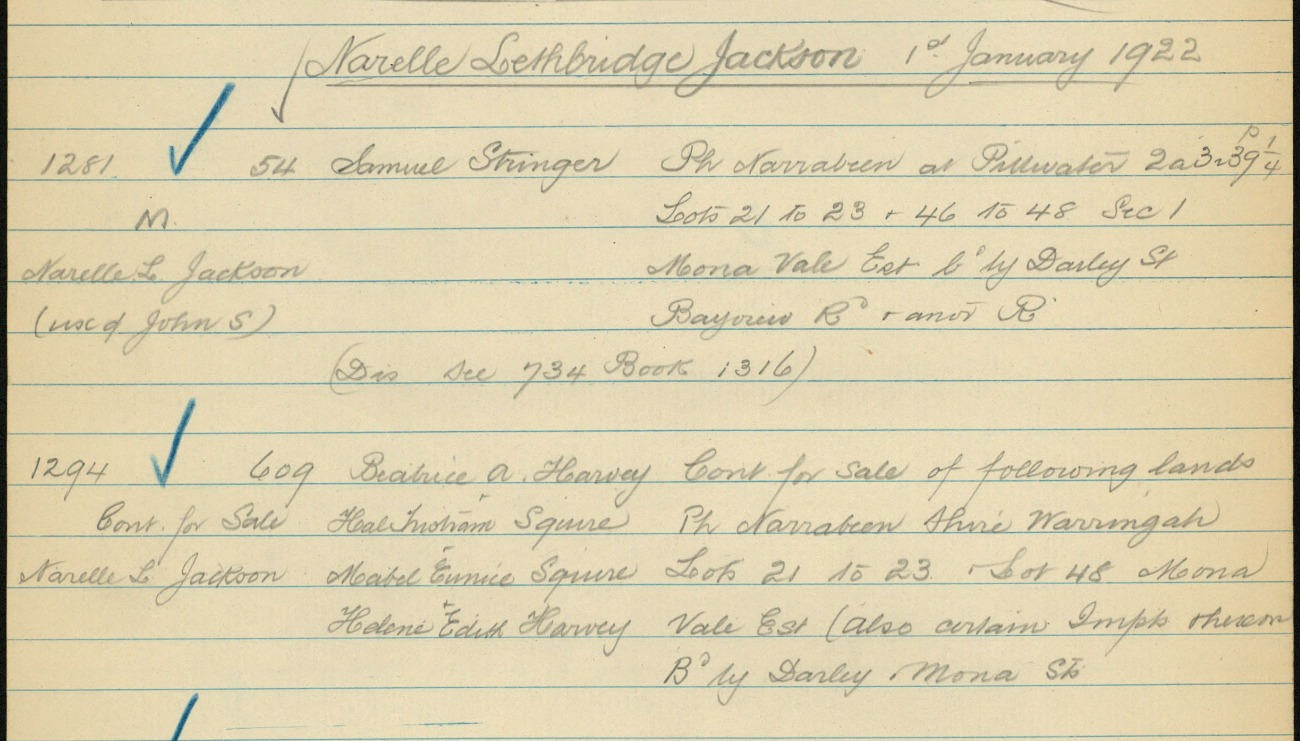 Narelle Lethbridge Jackson 1st January 1922
1281 54 Samuel Stringer Ph Narrabeen at Pittwater 2a 3r 39 1/4 p
M. Lots 21 to 23 + 46 to 48 Sec 1
Narelle L Jackson Mona Vale Est bd by Darley St
(ux of John S) Bayview Rd + anor Rd
(Dis see 734 Book 1316)
1294 609 Beatrice A. Harvey Cont for Sale of following lands
Cont. for Sale Hal Squire Ph Narrabeen Shire Warringah
Narelle L Jackson Mabel Eunice Squire Lots 21 to 23 + Lot 48 Mona
Helene Edith Harvey Vale Est (also certain Impts thereon
Bd by Darley + Mona Sts